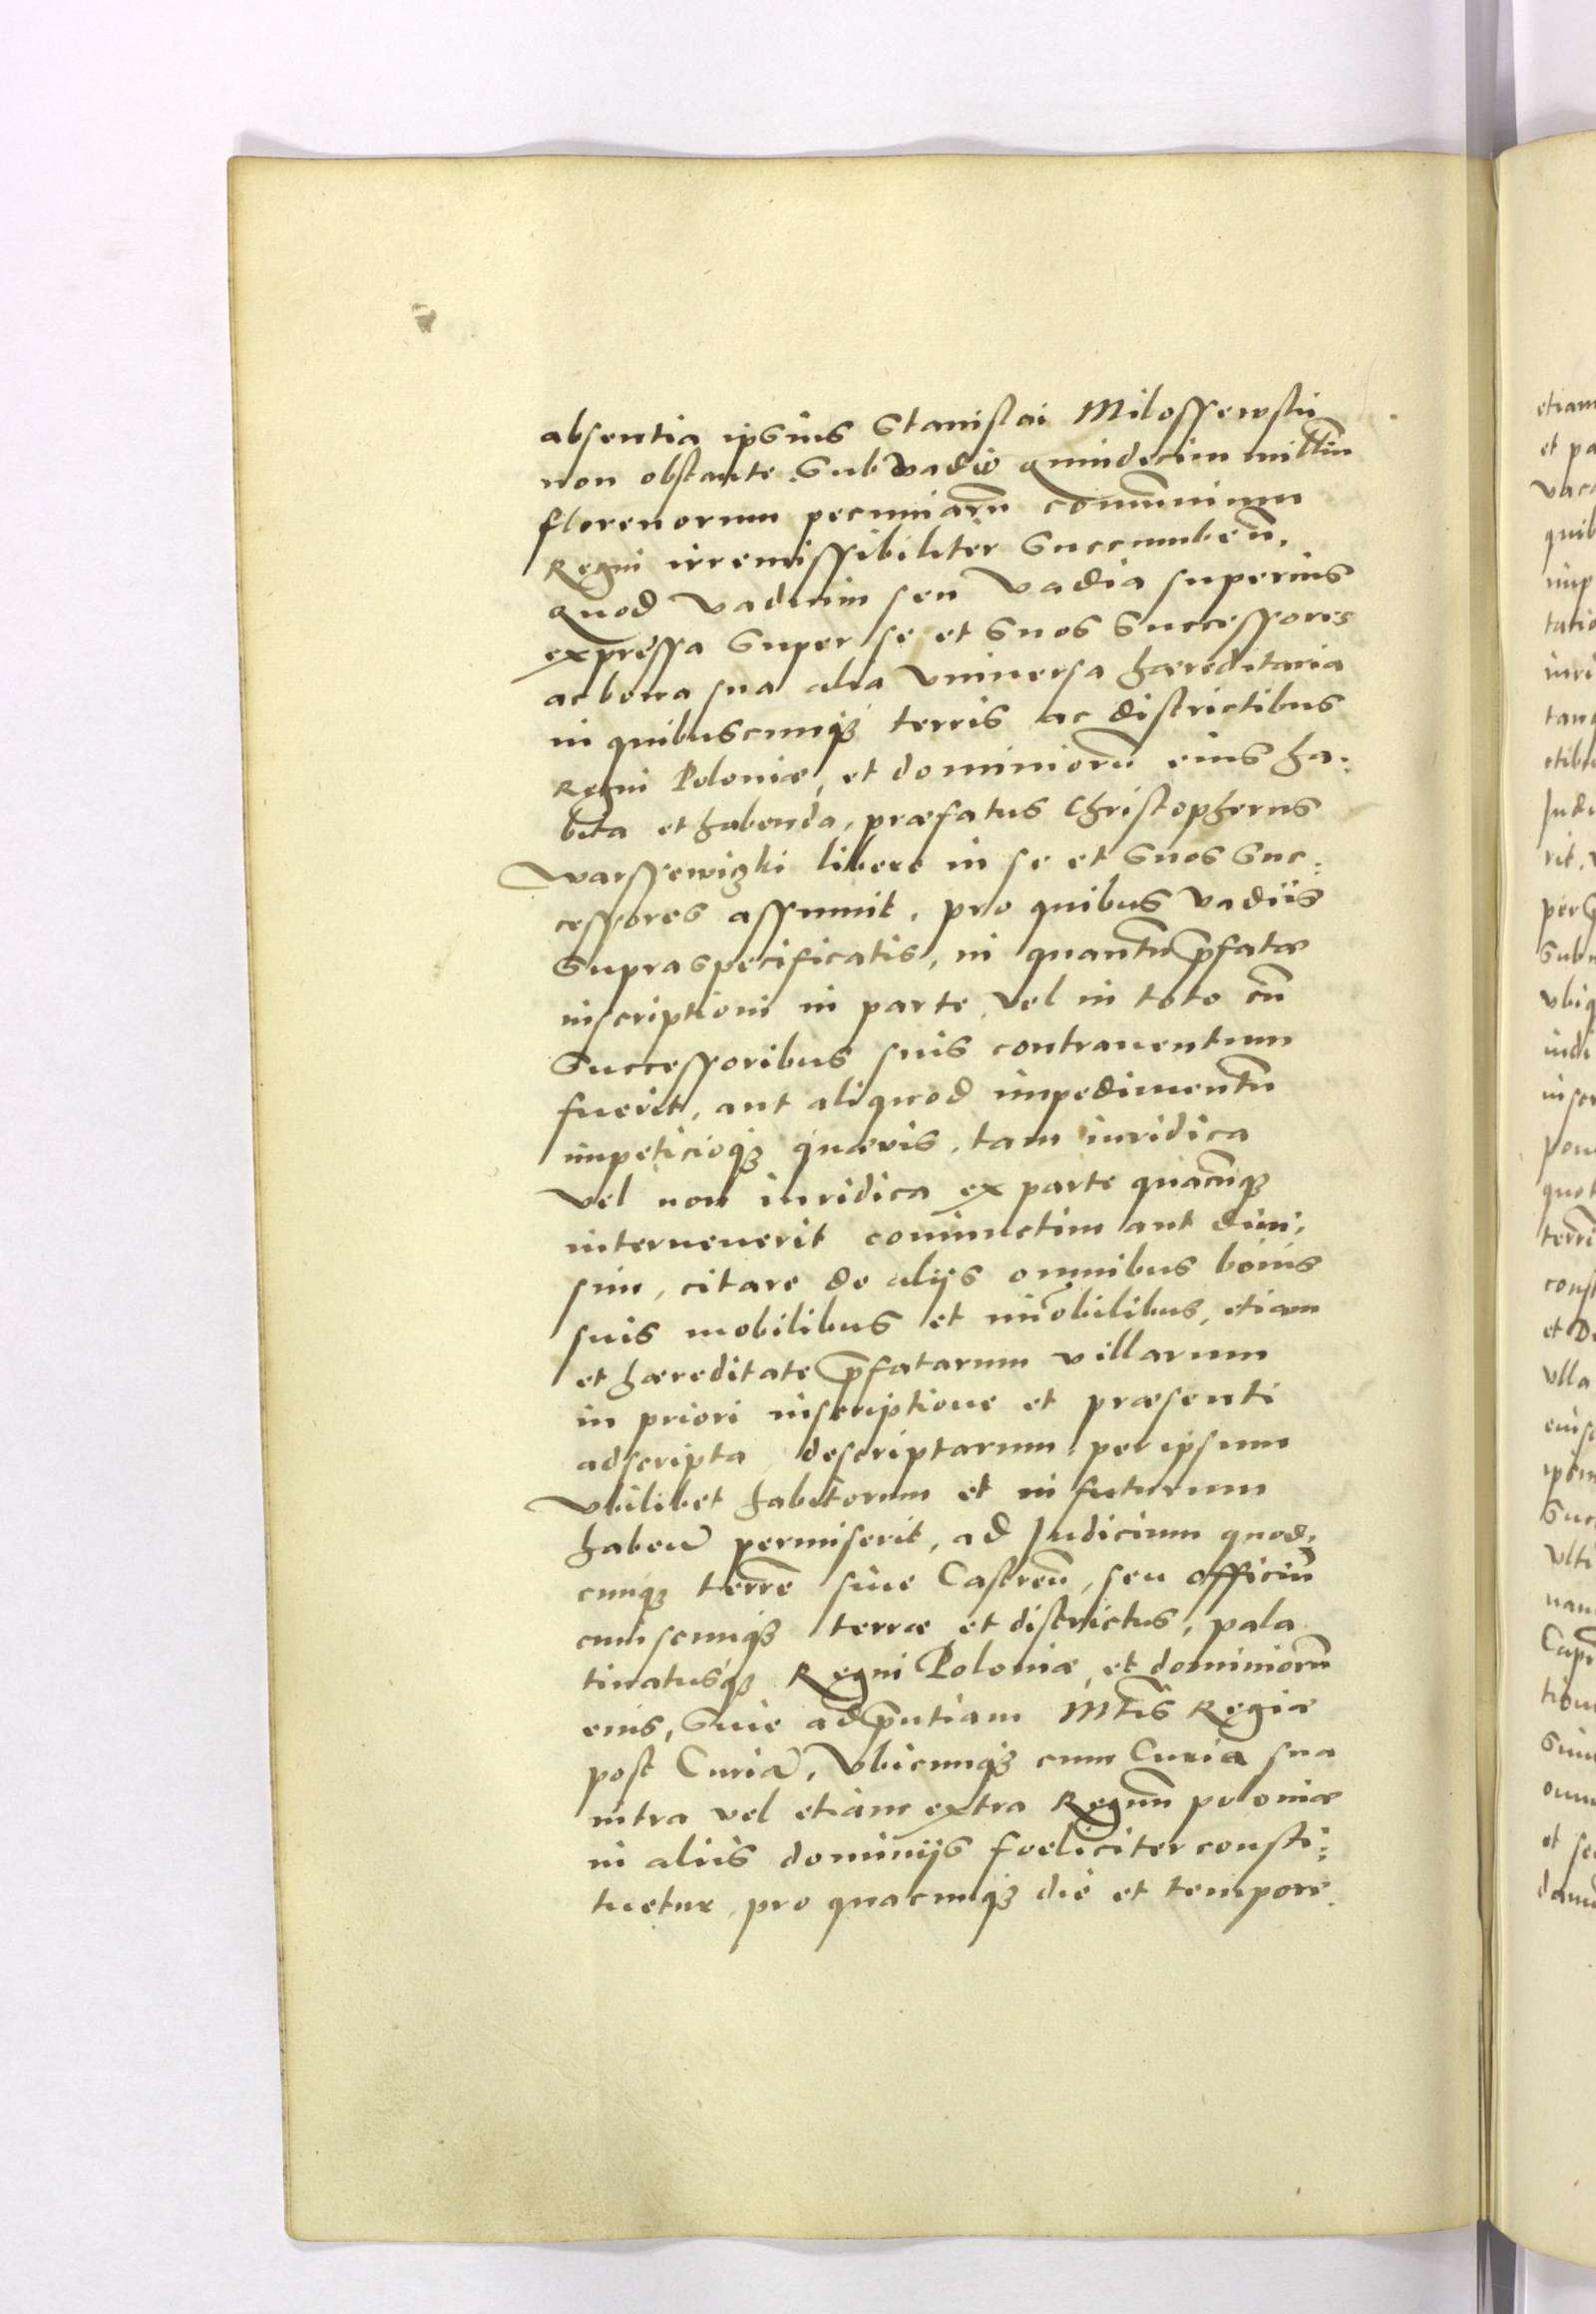 absentia ipsius Stanislai Milossewskii
non obstante, sub vadio quindecim milliū
florenorum pecuniarū com̄unium
Regni irremissibiliter succumbeñ.
Quod vadium seu vadia superius
expressa super se et suos successores
ac bona sua alia vniuersa hæreditaria
in quibuscunqꝫ terris ac districtibus
Regni Poloniæ, et dominiorū eius ha:
bita et habenda, præfatus Christopherus
Warssewiczki libere in se et suos suc:
cessores assumit, pro quibus vadiis
supraspecificatis, in quantū p̄fatæ
inscriptioni in parte vel in toto cū
successoribus suis contrauentum
fuerit, aut aliquod impedimentū
impeticioqꝫ quævis, tam iuridica
vel non iuridica ex parte quacūqꝫ
interuenerit coniunctim aut diui:
sim, citare de alijs omnibus bonis
suis mobilibus et im̄obilibus, etiam
et hæreditate p̄fatarum villarum
in priori inscriptione et præsenti
adscripta descriptarum, per ipsum
vbilibet habitorum et in futurum
habeñ permiserit, ad Judicium quod:
cunqꝫ terrē siue Castreñ, seu officiū
cuiuscunqꝫ terræ et districtus, pala
tinatusqꝫ Regni Poloniæ, et dominiorū
eius, siue ad p̄ntiam Mt̄is Regiæ
post Curiā, vbicunqꝫ cum Curia sua
intra vel etiam extra Regnū poloniæ
in aliis dominijs foeliciter consti:
tuetur, pro quacunqꝫ die et tempore